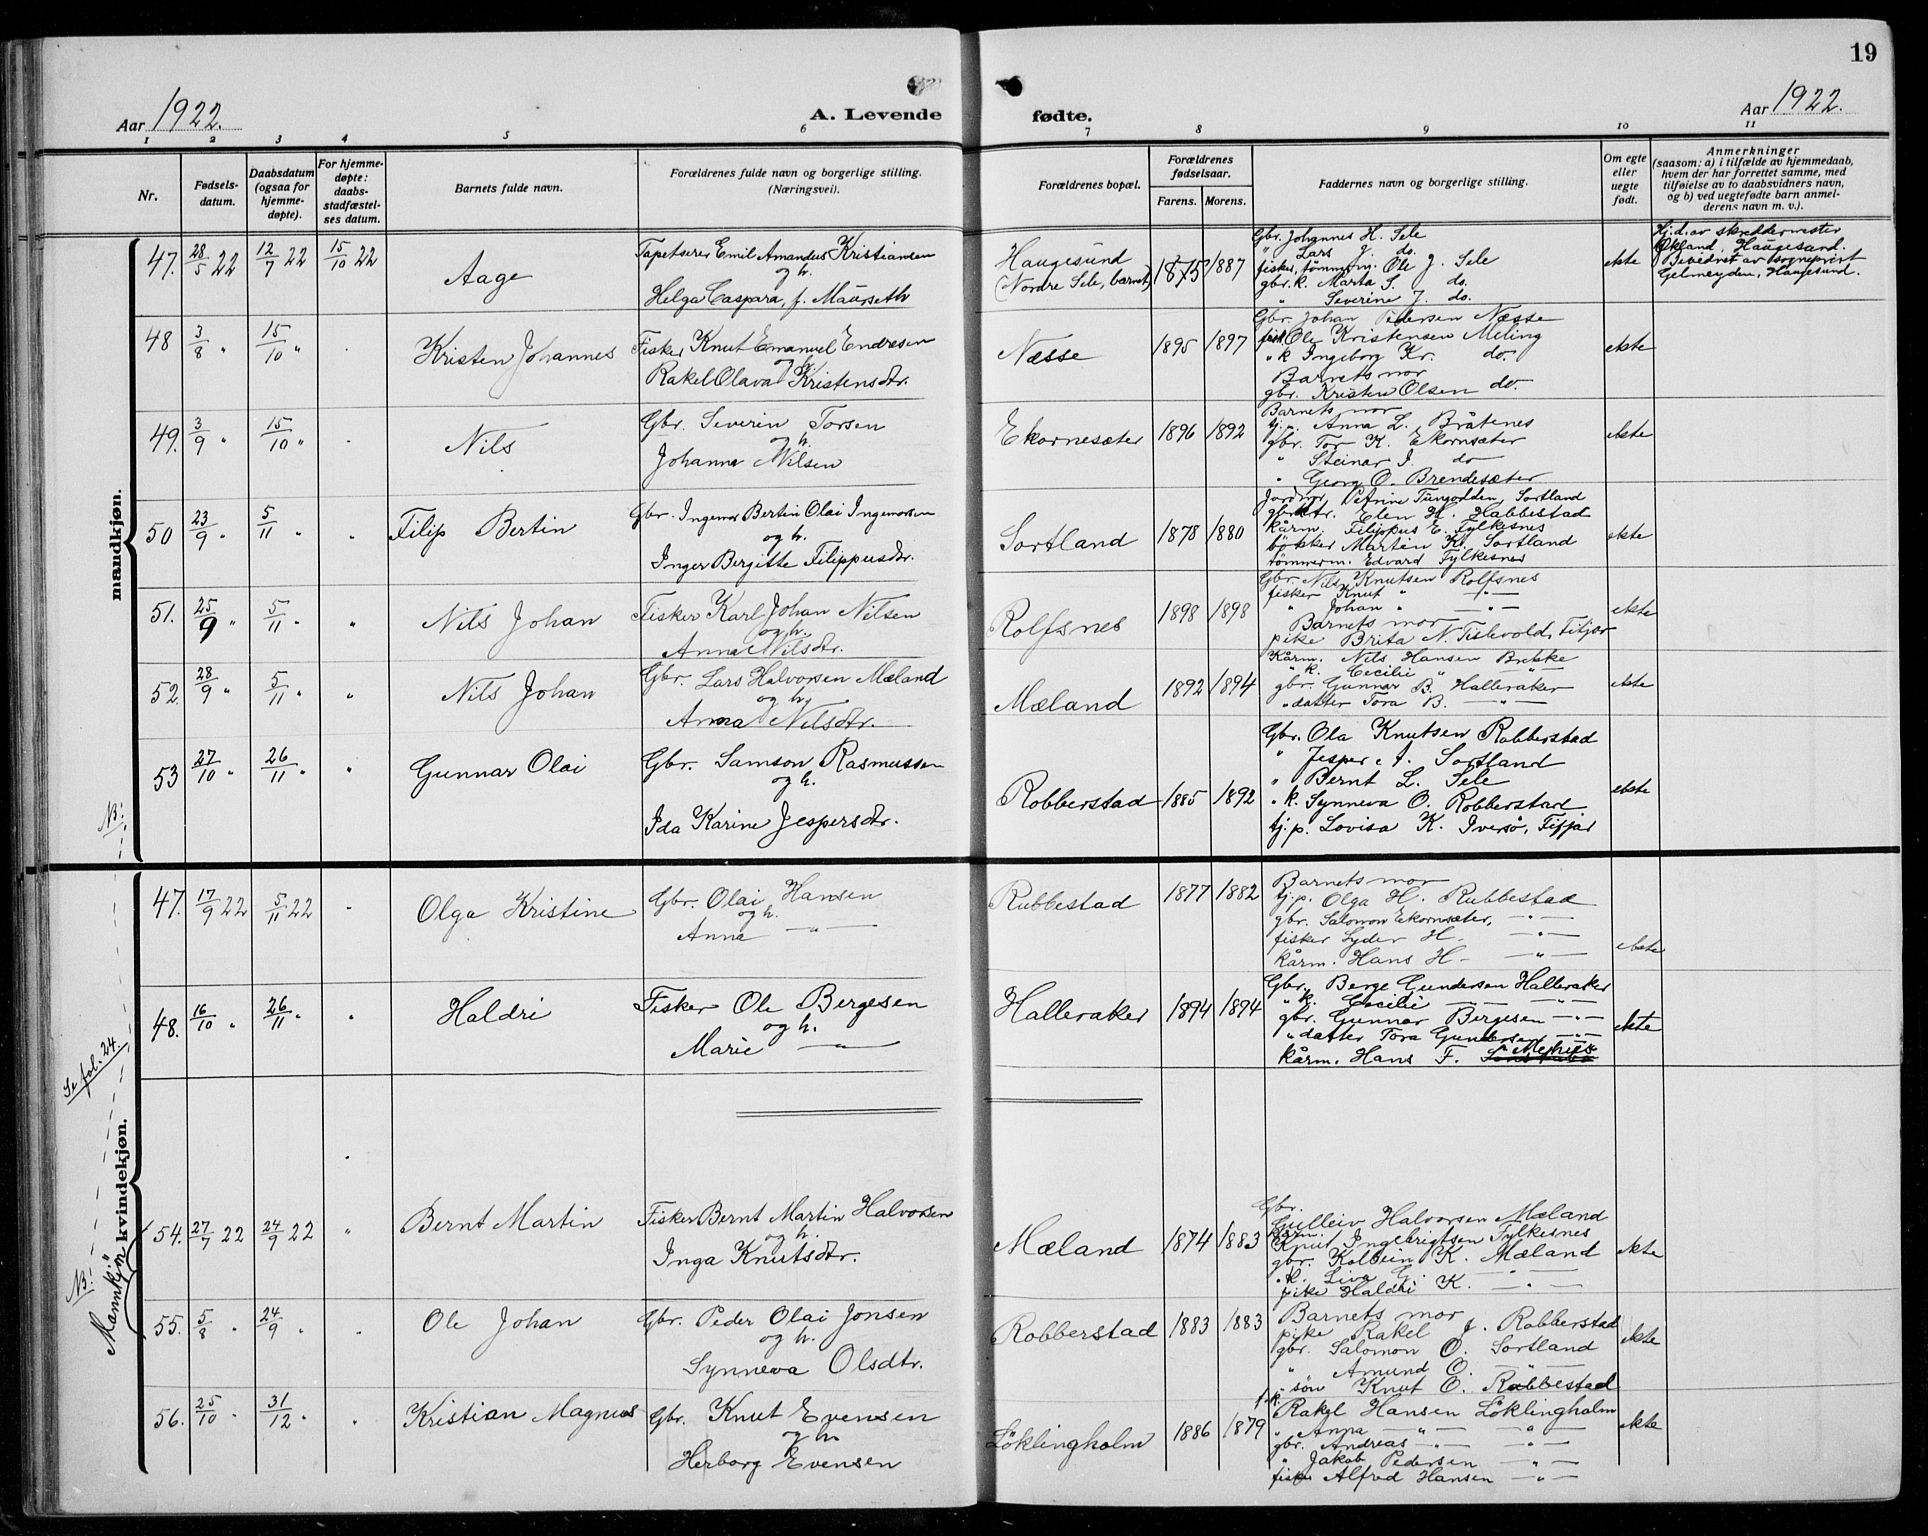 19
Aar 1922.
A. Levende fødte.
Aar 1922.
1 2 3 4 5 6 7 8 9 10 11
Nr.
Fødsels-
datum.
Daabsdatum
(ogsaa for
hjemme-
døpte).
For hjemme-
døpte:
daabs-
stadfæstel-
ses datum.
Barnets fulde navn.
Forældrenes fulde navn og borgerlige stilling.
(Næringsvei).
Forældrenes bopæl.
Forældrenes
fødselsaar.
Farens. Morens.
Faddernes navn og borgerlige stilling.
Om egte
eller
uegte
født.
Anmerkninger
(saasom: a) i tilfælde av hjemmedaab,
hvem der har forrettet samme, med
tilføielse av to daabsvidners navn,
og b) ved uegtefødte barn anmel-
derens navn m. v.).
mandkjøn.
47. 28/5 22 12/7 22 15/10 22
Aage
Tapetserer Emil Amandus Kristiansen
og h.
Helga Caspara, f. Maurseth
Haugesund
(Nordre Sele, barnet)
1875 1887
Gbr. Johannes H. Sele
" Lars J. do.
fisker, tømmerm. Ole J. Sele
gbr. k. Marta S. do.
" Severine J. do.
ekte
Hj.d. av skreddermester
Økland, Haugesund.
Bevidnet av sogneprest
Gelmeyden, Haugesund.
48 3/8 " 15/10 "
Kristen Johannes
Fisker Knut Emanuel Endresen
og h.
Rakel Olava Kristensdtr.
Næsse
1895 1897
Gbr. Johan Pedersen Næsse
fisk. Ole Kristensen Meling
" k Ingeborg Kr. do.
Barnets mor
gbr. Kristen Olsen do.
ekte
49. 3/9 " 15/10 "
Nils
Gbr. Severin Torsen
og h.
Johanna Nilsen
Ekornesæter
1896 1892
Barnets mor
Anna L. Bråtenes
gbr. Tor K. Ekornsæter
" Steinar I. do
" Georg O. Brendesæter
ekte
50 23/9 " 5/11 " "
Filip Bertin
Gbr. Ingemor Bertin Olai Ingemorsen
og h.
Inger Bergitte Filippusdtr.
Sortland
1878 1880
Jordmor Petrine Tungodden, Sortland
gbrdtr. Elen H. Habbestad
kårm. Filippus E. Fylkesnes
bøkker Martin K. Sortland
tømmerm. Edvard Fylkesnes
ekte
51. 25/9 " 5/11 " "
Nils Johan
Fisker Karl Johan Nilsen
og h.
Anna Nilsdtr.
Rolfsnes
1898 1898
Gbr. Nils Knutsen Rolfsnes
fisker Knut " — " —
" Johan " — " —
Barnets mor
pike Brita N. Tislevold, Fitjar
ekte
52. 28/9 " 5/11 " "
Nils Johan
Gbr. Lars Halvorsen Mæland
og h.
Anna Nilsdtr.
Mæland
1892 1894
Kårm. Nils Hansen Brekke
" k. Cecilie " — " —
gbr. Gunnar B. Halleraker
" datter Tora B. — " —
ekte
53 27/10 " 26/11 " "
Gunnar Olai
Gbr. Samson Rasmussen
og h.
Ida Karine Jespersdtr.
Robberstad
1885 1892
Gbr. Ola Knutsen Robberstad
" Jesper J. Sortland
" Bernt L. Sele
" k. Synneva O. Robberstad
tj.p. Lovisa K. Iversø, Fitjar
ekte
NB:
Se fol. 24.
NB:
Mannkjøn
kvindekjøn.
47. 17/9 22 5/11 22 "
Olga Kristine
Gbr. Olai Hansen
og h.
Anna — " —
Rubbestad
1877 1882
Barnets mor
tj.p. Olga H. Rubbestad
gbr. Salomon Ekornsæter, — " —
fisker Lyder H. — " —
kårm. Hans H. — " —
ekte
48. 16/10 " 26/11 " "
Haldri
Fisker Ole Bergesen
og h.
Marie — " —
Halleraker
1894 1894
Gbr. Berge Gundersen Halleraker
" k. Cecilie — — " —
gbr. Gunnar Bergesen — " —
" datter Tora Gundersen — " —
kårm. Hans F.
ekte
54. 27/7 22 24/9 22 "
Bernt Martin
Fisker Bernt Martin Halvorsen
og h.
Inga Knutsdtr.
Mæland
1874 1883
Gbr.
Gulleiv Halvorsen Mæland
kårm.
Knut Ingebrigtsen Fylkesnes
gbr. Kolbein K. Mæland
" k. Liva G. — " —
pike Haldri K. — " —
ekte
55. 5/8 " 24/9 " "
Ole Johan
Gbr. Peder Olai Jonsen
og h.
Synneva Olsdtr.
Robberstad
1883 1883
Barnets mor
pike Rakel J. Robberstad
gbr. Salomon O. Sortland
" Amund O. — " —
" søn Knut O. Rubbestad
ekte
56. 25/10 " 31/12 " "
Kristian Magnus
Gbr. Knut Evensen
og h.
Herborg Evensen
Løklingholm
1886 1879
f.k.
Rakel Hansen Løklingholm
" Anna — " — — " —
gbr. Andreas — " — — " —
" Jakob Pedersen — " —
fisker Alfred Hansen — " —
ekte